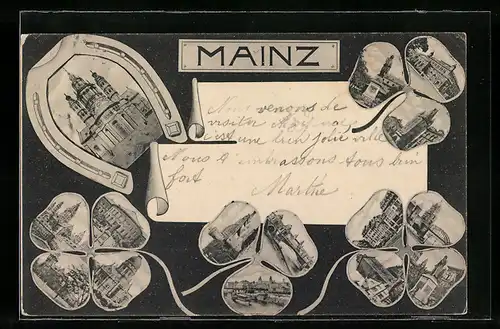 MAINZ
Nous venons de
visiter
c'est une bien jolie ville
Nous t'embrassons tous bien
fort
Marthe